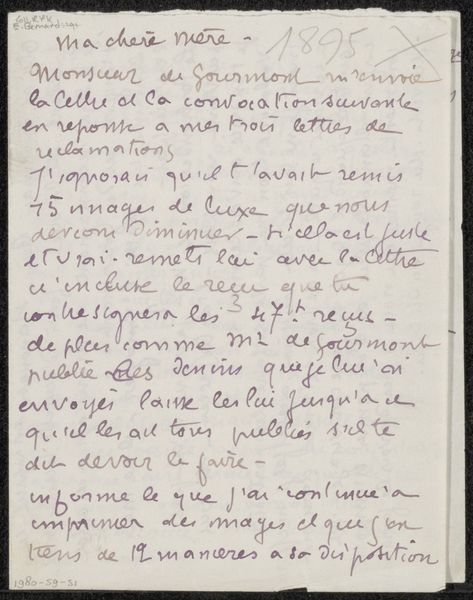 E. Bernard
ma chere mère -
1895
Monsieur de Gourmont m'envoie
la lettre et la convocation suivante
en reponse a mes trois lettres de
reclamations
J'ignorais qu'il t'avait remis
15 images de luxe que nous
devions diminuer - si cela est juste
et vrai - remets lui avec la lettre
ci incluse le recu que tu
contresignera les 347 f. reçus -
de plus comme Mr de Gourmont
publie des dessins que je lui ai
envoyés laisse les lui jusqu'a ce
qu'il les ait tous publiés s'il te
dit devoir le faire -
informe le que j'ai continué a
imprimer des images et que j'en
tiens de 12 manieres a sa disposition
1980-59-51